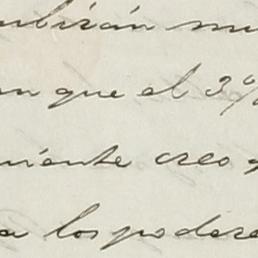 ubirán mu
un que el 3%
niente creo q
a los podere